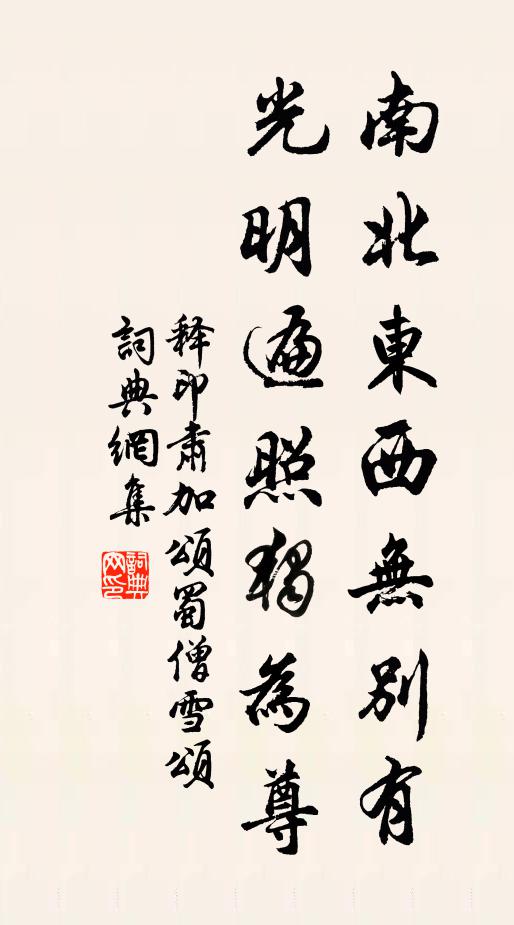 南北東西無別有
光明遍照獨為尊
释印肅加頌蜀僧雪頌
詞典網集
詞典
网印